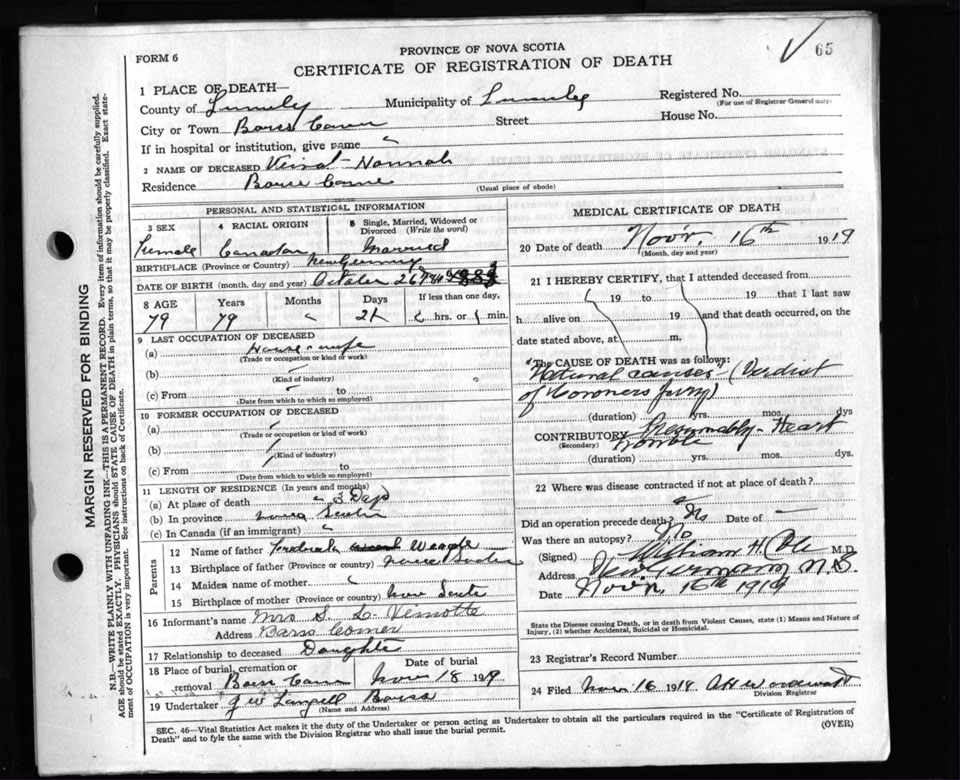 PROVINCE OF NOVA SCOTIA
FORM 6
CERTIFICATE OF REGISTRATION OF DEATH
65
1 PLACE OF DEATH—
County of
Municipality of
Registered No.
(For use of Registrar General only)
City or Town
Street
House No.
If in hospital or institution, give name
2 NAME OF DECEASED Hannah
Residence
(Usual place of abode)
PERSONAL AND STATISTICAL INFORMATION
3 SEX
4 RACIAL ORIGIN
5 Single, Married, Widowed or Divorced (Write the word)
Female Canadian Married
BIRTHPLACE (Province or Country) New Germany
DATE OF BIRTH (month, day and year) October 26
8 AGE Years Months Days If less than one day,
79 79 21 hrs. or min.
9 LAST OCCUPATION OF DECEASED
(a) House-wife
(Trade or occupation or kind of work)
(b)
(Kind of industry)
(c) From to
(Date from which to which so employed)
10 FORMER OCCUPATION OF DECEASED
(a)
(Trade or occupation or kind of work)
(b)
(Kind of industry)
(c) From to
(Date from which to which so employed)
11 LENGTH OF RESIDENCE (In years and months)
(a) At place of death 3 Days
(b) In province Nova Scotia
(c) In Canada (if an immigrant)
Parents
12 Name of father Frederick
13 Birthplace of father (Province or country) Nova Scotia
14 Maiden name of mother
15 Birthplace of mother (Province or country) Nova Scotia
16 Informant's name Mrs S. L. Veinotte
Address Barss Corner
17 Relationship to deceased Daughter
18 Place of burial, cremation or removal
Date of burial Nov 18 1919
19 Undertaker
(Name and Address)
MEDICAL CERTIFICATE OF DEATH
20 Date of death Novr. 16th 1919
(Month, day and year)
21 I HEREBY CERTIFY, that I attended deceased from
19 to 19 that I last saw
h alive on 19 and that death occurred, on the
date stated above, at m.
The CAUSE OF DEATH was as follows:
"Natural causes" (Verdict
of Coroners jury)
(duration) yrs. mos. dys
CONTRIBUTORY Presumably Heart
(Secondary)
(duration) yrs. mos. dys.
22 Where was disease contracted if not at place of death?
Did an operation precede death? No Date of —
Was there an autopsy? No
(Signed) William H Cole M.D.
Address New Germany N.S.
Date Novr. 16th 1919
State the Disease causing Death, or in death from Violent Causes, state (1) Means and Nature of
Injury, (2) whether Accidental, Suicidal or Homicidal.
23 Registrar's Record Number
24 Filed Nov 16 1919
Division Registrar
SEC. 46—Vital Statistics Act makes it the duty of the Undertaker or person acting as Undertaker to obtain all the particulars required in the "Certificate of Registration of
Death" and to fyle the same with the Division Registrar who shall issue the burial permit.
(OVER)
MARGIN RESERVED FOR BINDING
N.B.—WRITE PLAINLY WITH UNFADING INK—THIS IS A PERMANENT RECORD. Every item of information should be carefully supplied.
AGE should be stated EXACTLY. PHYSICIANS should STATE CAUSE OF DEATH in plain terms, so that it may be properly classified. Exact statement
of OCCUPATION is very important. See instructions on back of Certificate.